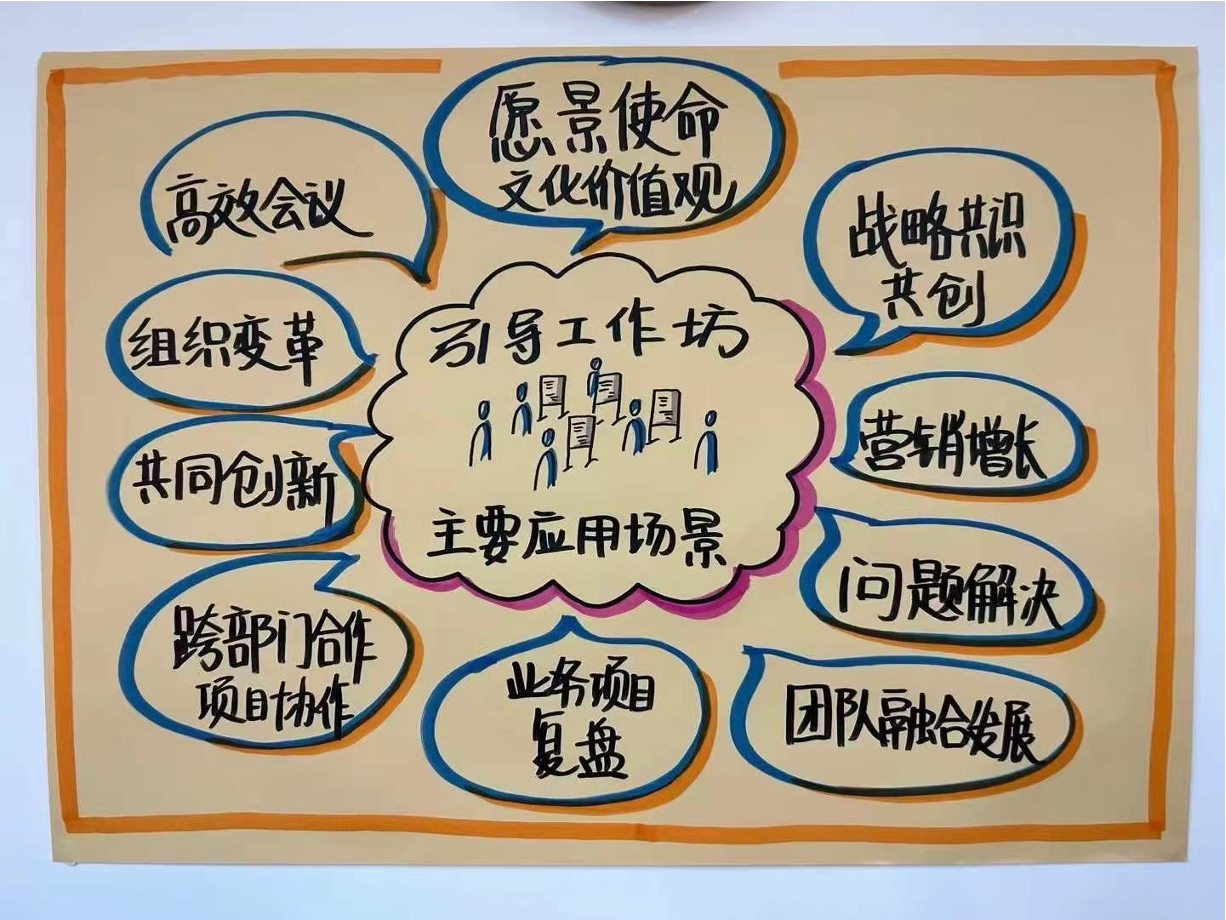 愿景使命
文化价值观
高效会议
战略共识
共创
组织变革
引导工作坊
营销增长
共同创新
主要应用场景
问题解决
跨部门合作
项目协作
业务项目
复盘
团队融合发展